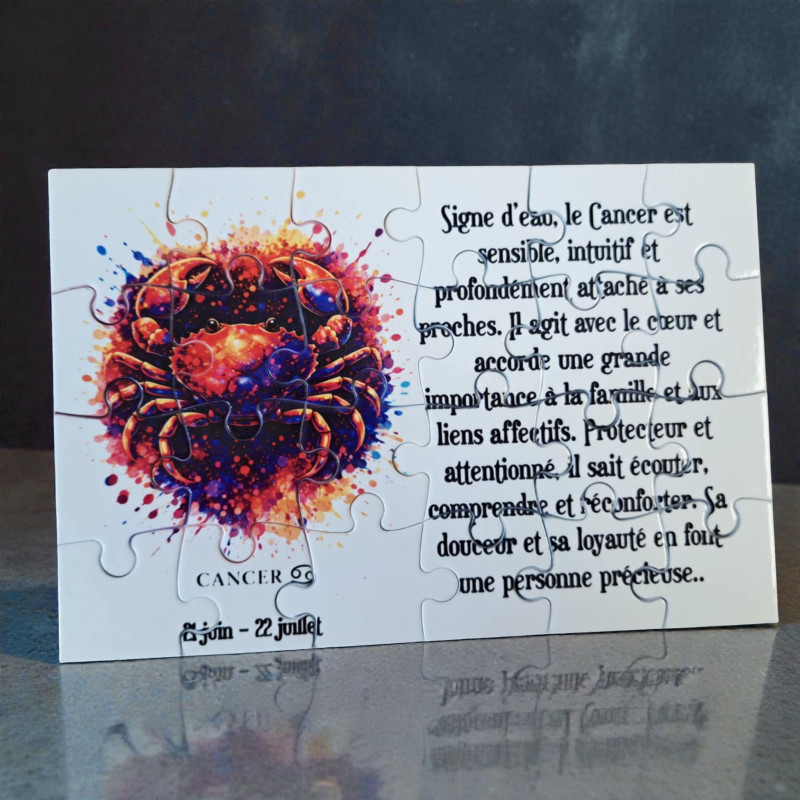 Signe d'eau, le Cancer est
sensible, intuitif et
profondément attaché à ses
proches. Il agit avec le cœur et
accorde une grande
importance à la famille et aux
liens affectifs. Protecteur et
attentionné, il sait écouter,
comprendre et réconforter. Sa
douceur et sa loyauté en font
une personne précieuse..
CANCER ♋
juin - 22 juillet